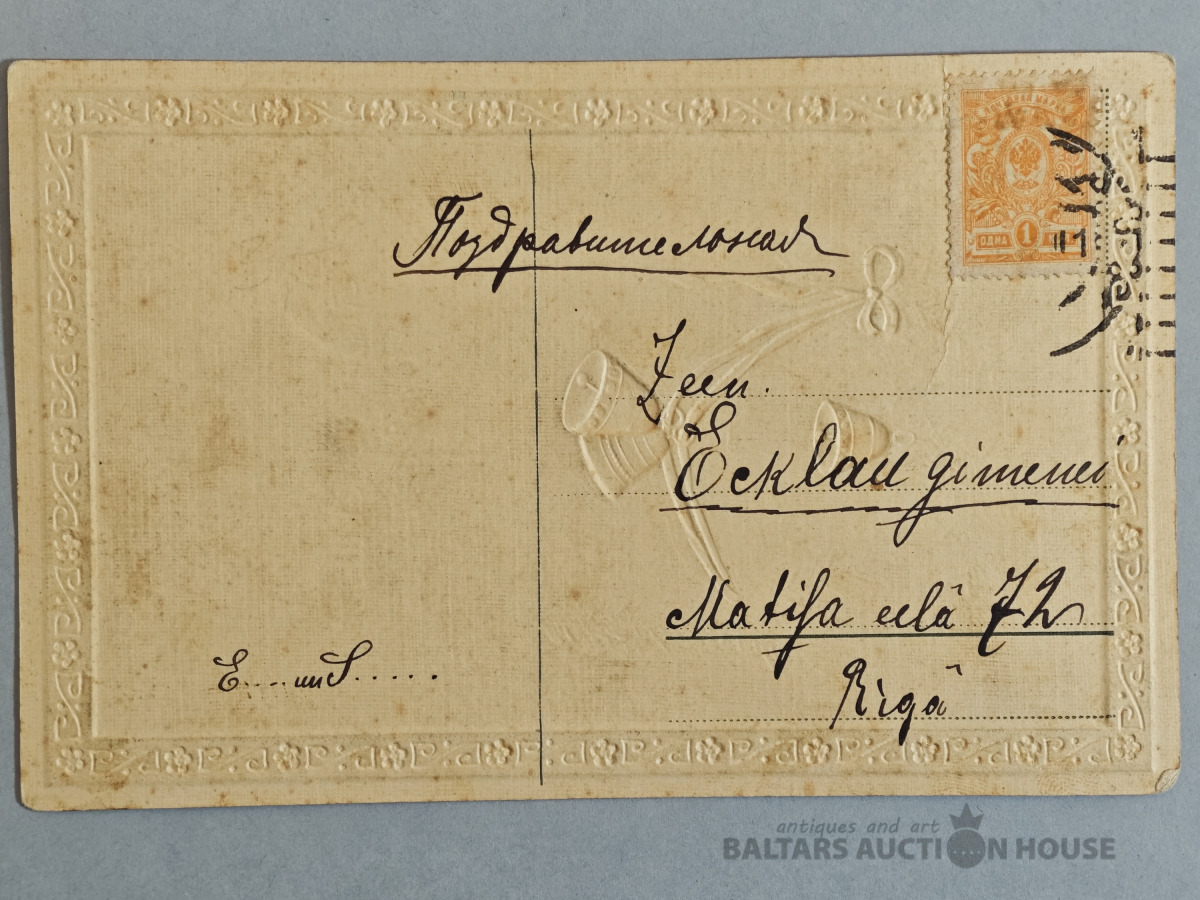 Поздравительная
Zeen.
Ecklau gimenei
Matisa eelâ 72
Rigâ
E.... un S.....
ОДНА 1
antiques and art
BALTARS AUCTION HOUSE